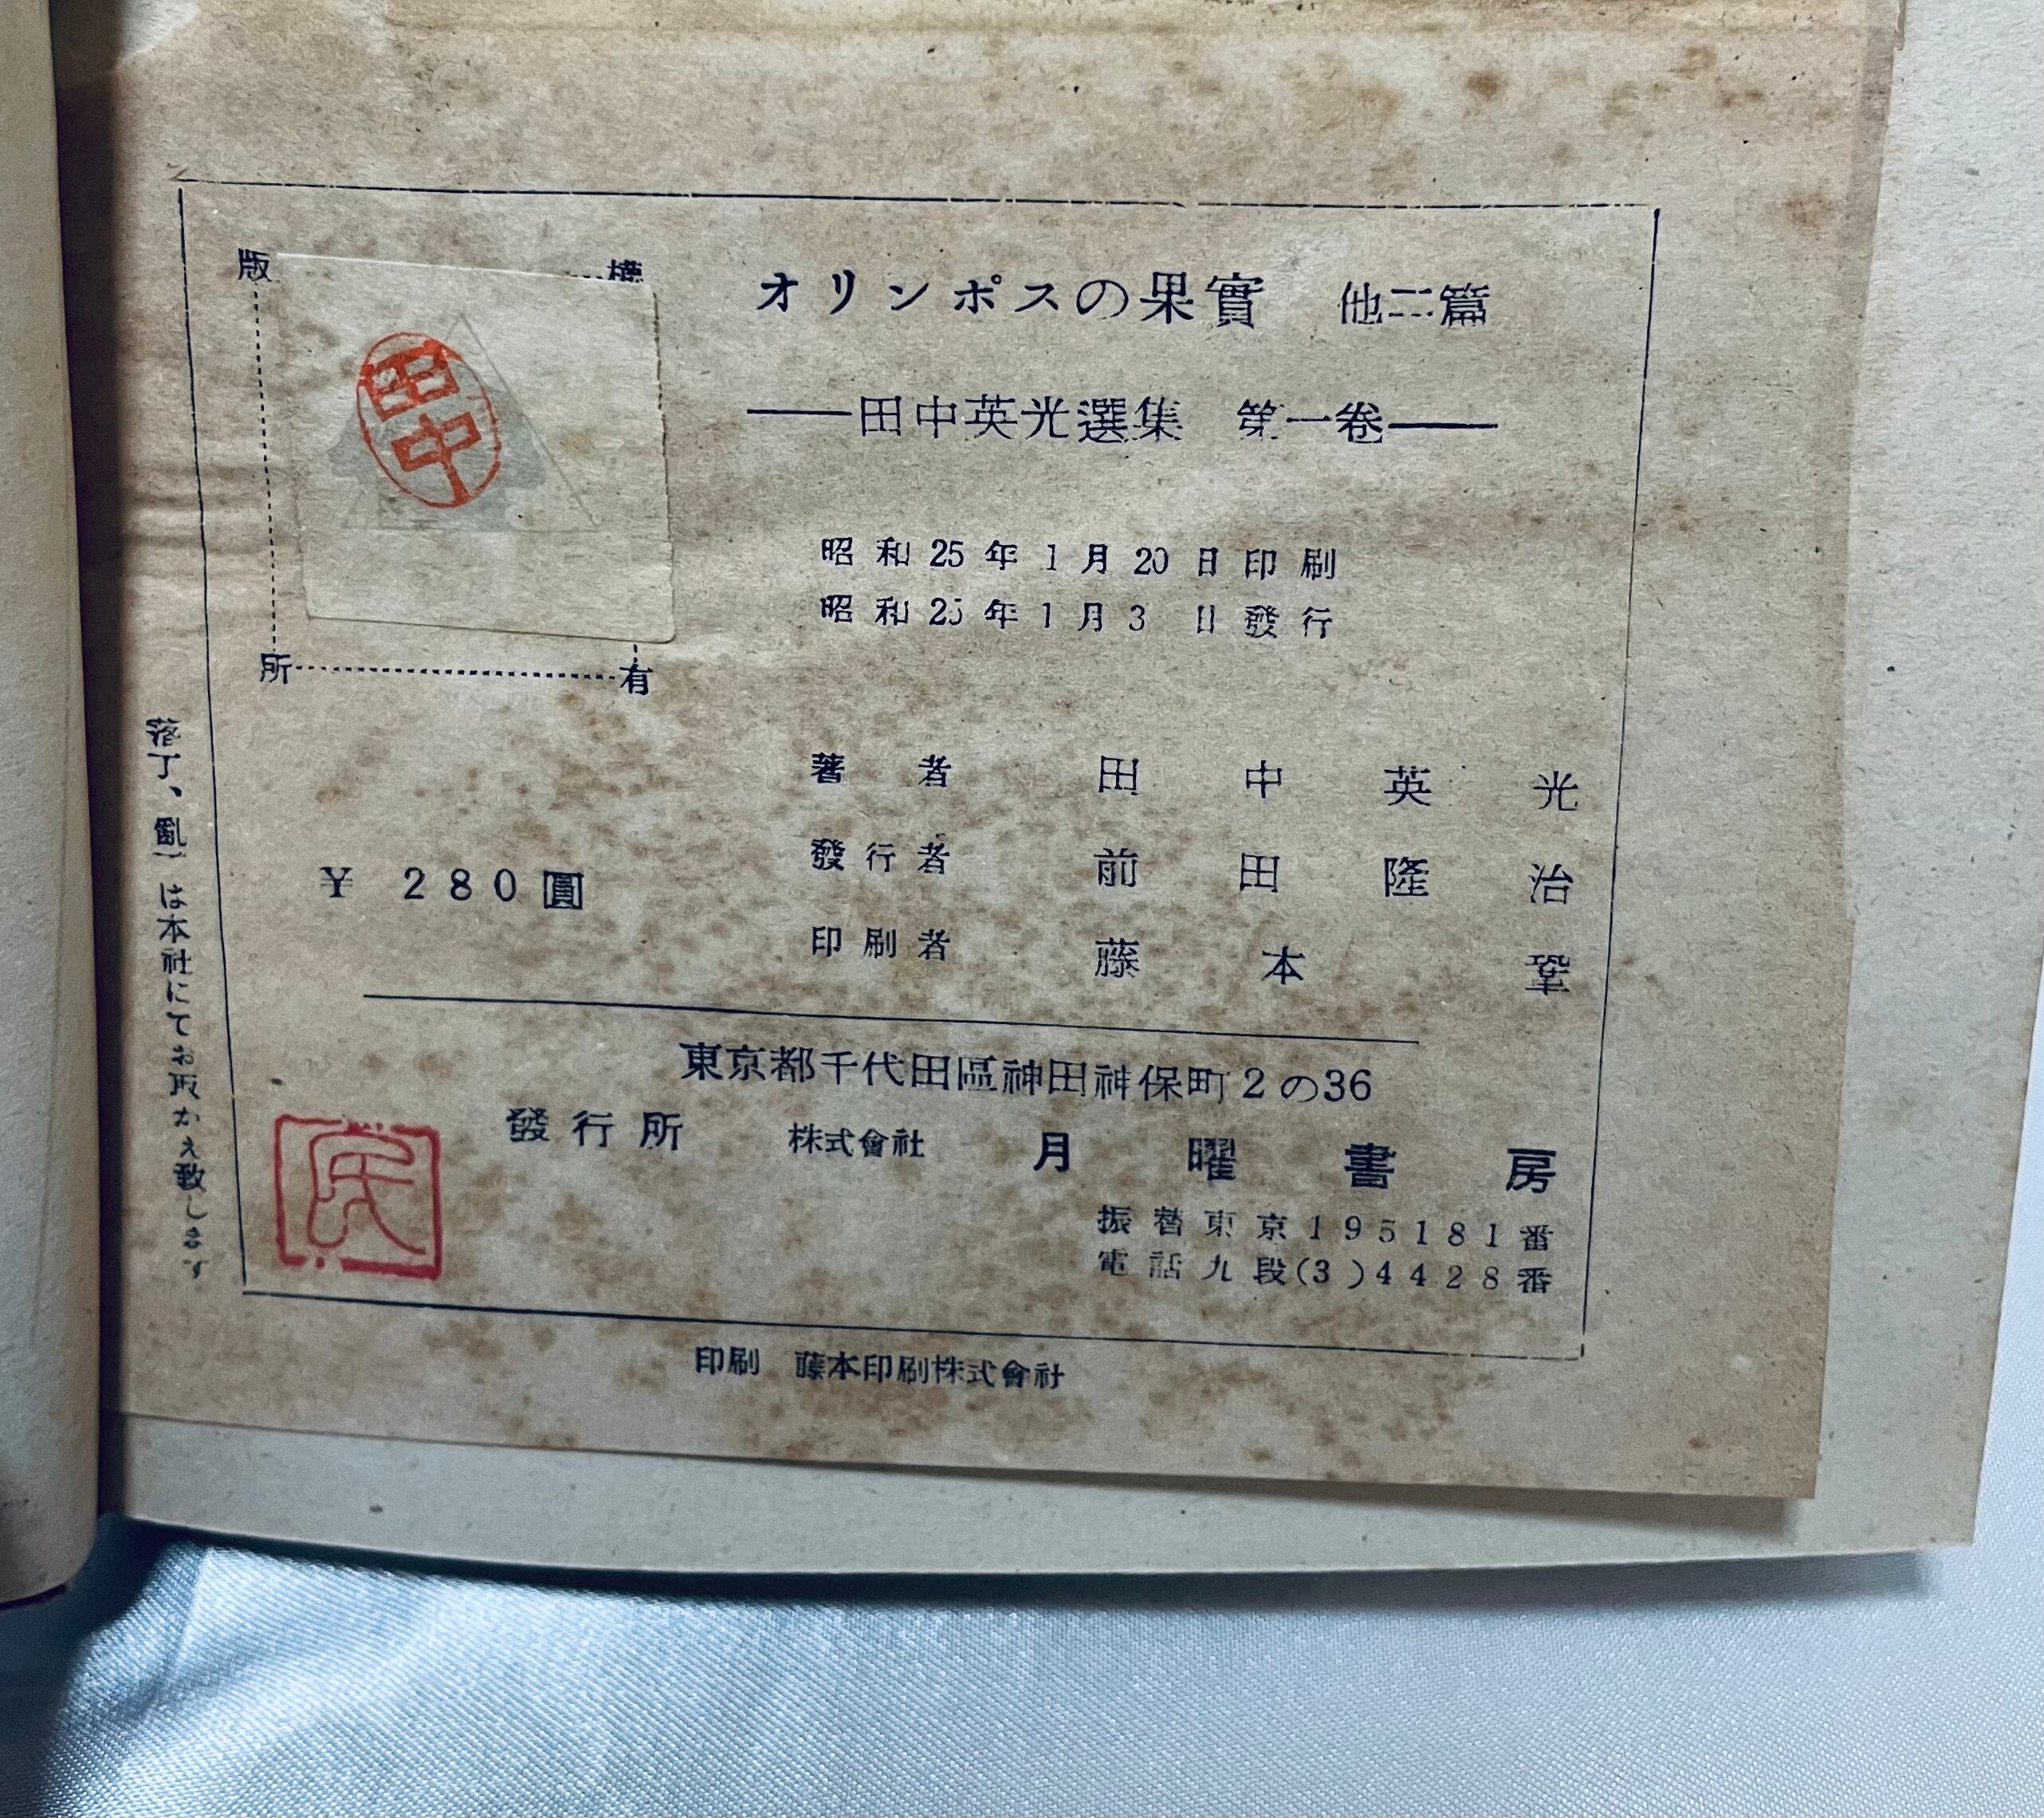 オリンポスの果實 他二篇
——田中英光選集 第一卷——
版 權
所 有
田中
昭和25年1月20日印刷
昭和25年1月3 日發行
著者 田中英光
發行者 前田隆治
印刷者 藤本鞏
¥ 280圓
東京都千代田區神田神保町2の36
發行所 株式會社 月曜書房
振替東京195181番
電話九段(3)4428番
印刷 藤本印刷株式會社
落丁、亂丁は本社にてお取かえ致します